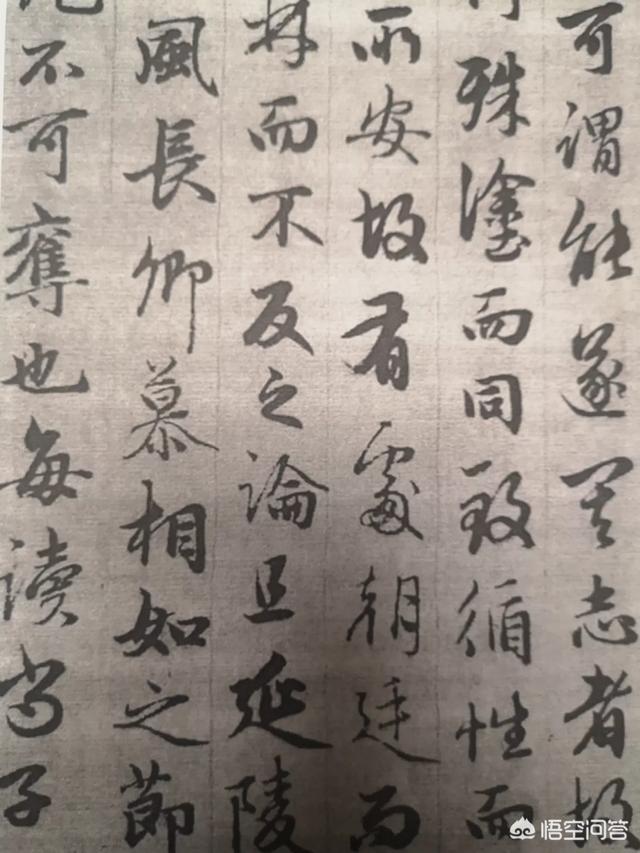 可謂能遂其志者故
殊塗而同致循性而
所安故有處朝廷而
林而不反之論且延陵
風長卿慕相如之節
不可奪也每讀尚子
悟空问答